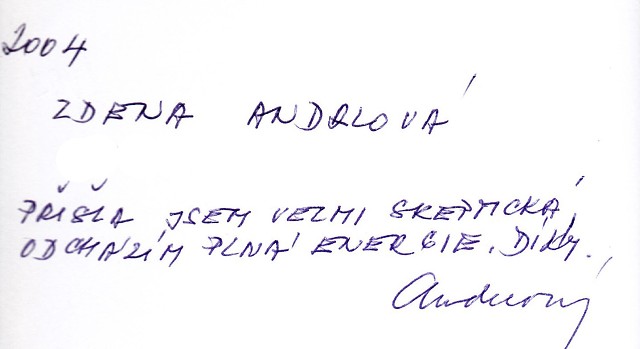 2004
ZDENA ANDRLOVÁ
PŘIŠLA JSEM VELMI SKEPTICKÁ,
ODCHÁZÍM PLNÁ ENERGIE. DÍKY.